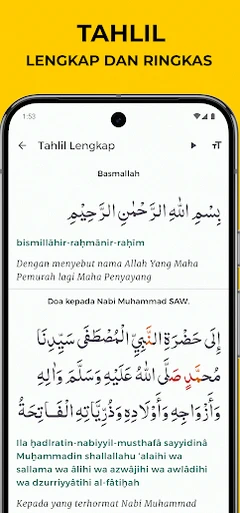 TAHLIL
LENGKAP DAN RINGKAS
1:53
Tahlil Lengkap
TT
Basmallah
بِسْمِ اللهِ الرَّحْمٰنِ الرَّحِيْمِ
bismillāhir-raḥmānir-raḥīm
Dengan menyebut nama Allah Yang Maha
Pemurah lagi Maha Penyayang
Doa kepada Nabi Muhammad SAW.
إِلَى حَضْرَةِ النَّبِيِّ الْمُصْطَفَى سَيِّدِنَا
مُحَمَّدٍ صَلَّى اللهُ عَلَيْهِ وَسَلَّمَ وَاٰلِهِ
وَأَزْوَاجِهِ وَأَوْلَادِهِ وَذُرِّيَّاتِهِ الْفَاتِحَةُ
Ila ḥaḍlratin-nabiyyil-musthafā sayyidinā
Muḥammadin shallallahu 'alaihi wa
sallama wa ālihi wa azwājihi wa awlādihi
wa dzurriyyātihi al-fātiḥah
Kepada yang terhormat Nabi Muhammad